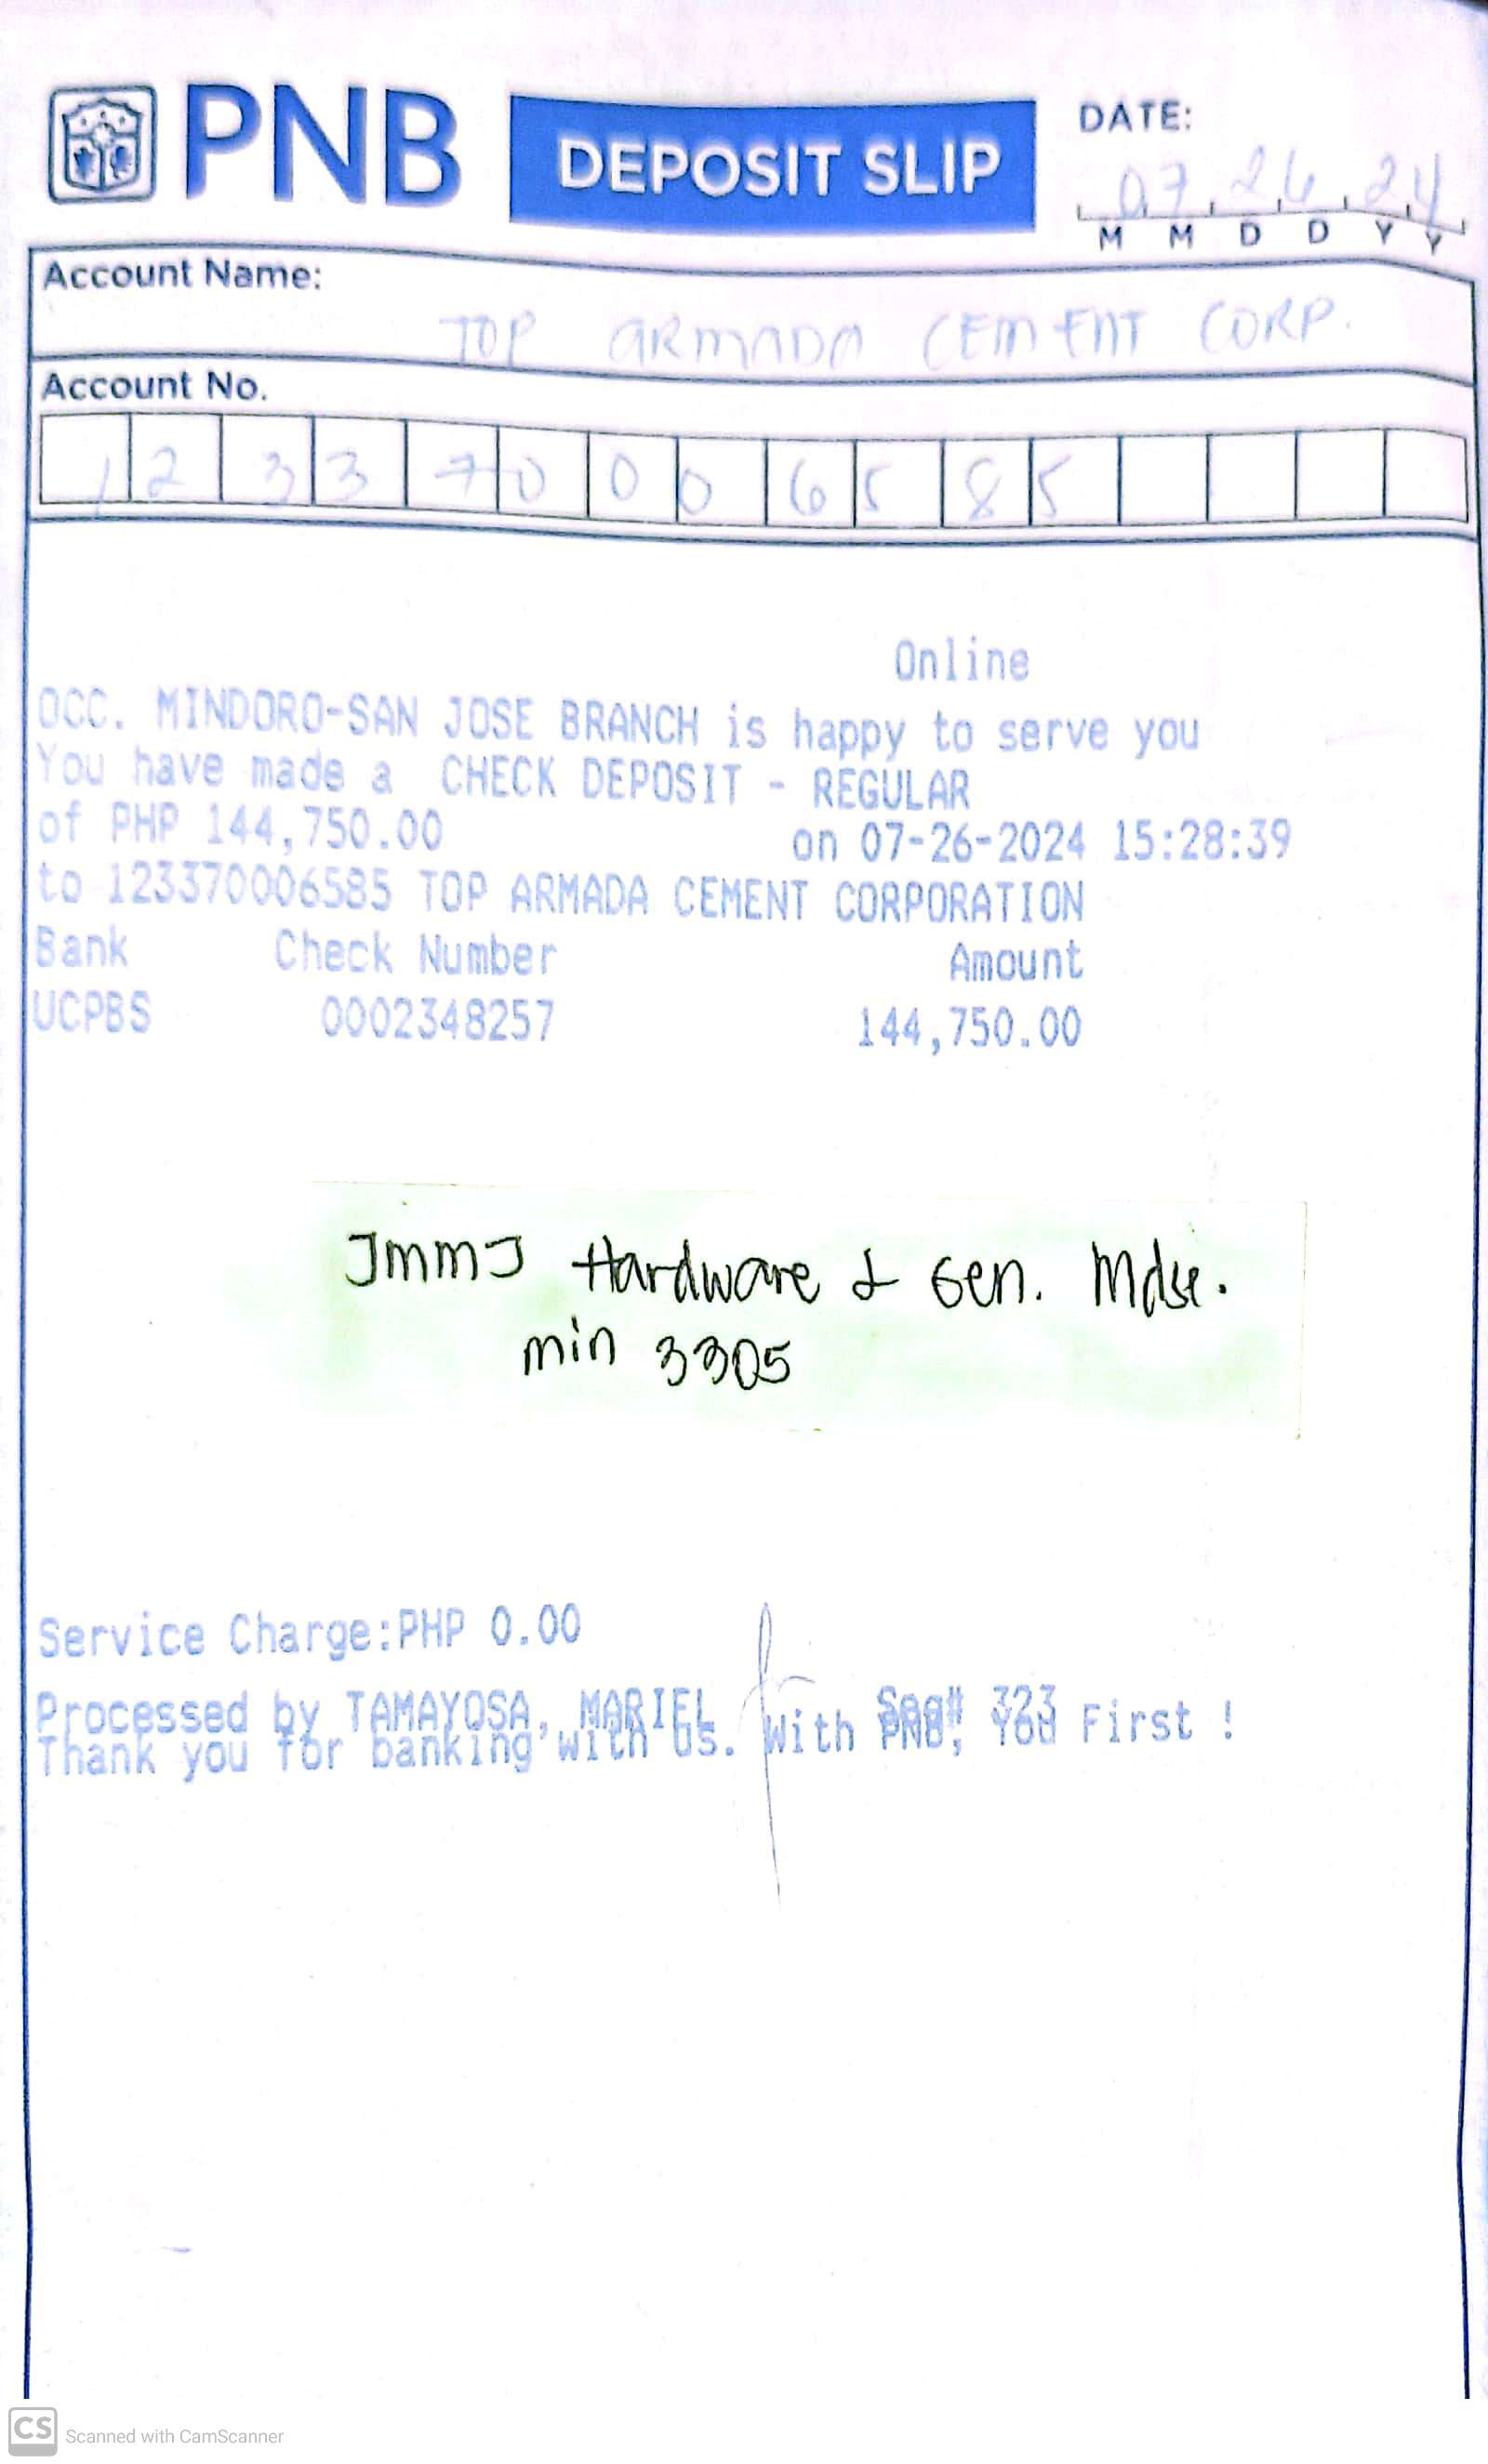 PNB DEPOSIT SLIP DATE:
07 26 24
M M D D Y Y
Account Name:
TOP ARMADA CEMENT CORP.
Account No.
1 2 3 3 7 0 0 0 6 5 8 5
Online
OCC. MINDORO-SAN JOSE BRANCH is happy to serve you
You have made a CHECK DEPOSIT - REGULAR
of PHP 144,750.00 on 07-26-2024 15:28:39
to 123370006585 TOP ARMADA CEMENT CORPORATION
Bank Check Number Amount
UCPBS 0002348257 144,750.00
JmmJ Hardware & Gen. Mdse.
min 3305
Service Charge:PHP 0.00
Processed by TAMAYOSA, MARIEL Seq# 323
Thank you for banking with us. With PNB, You First !
CS Scanned with CamScanner